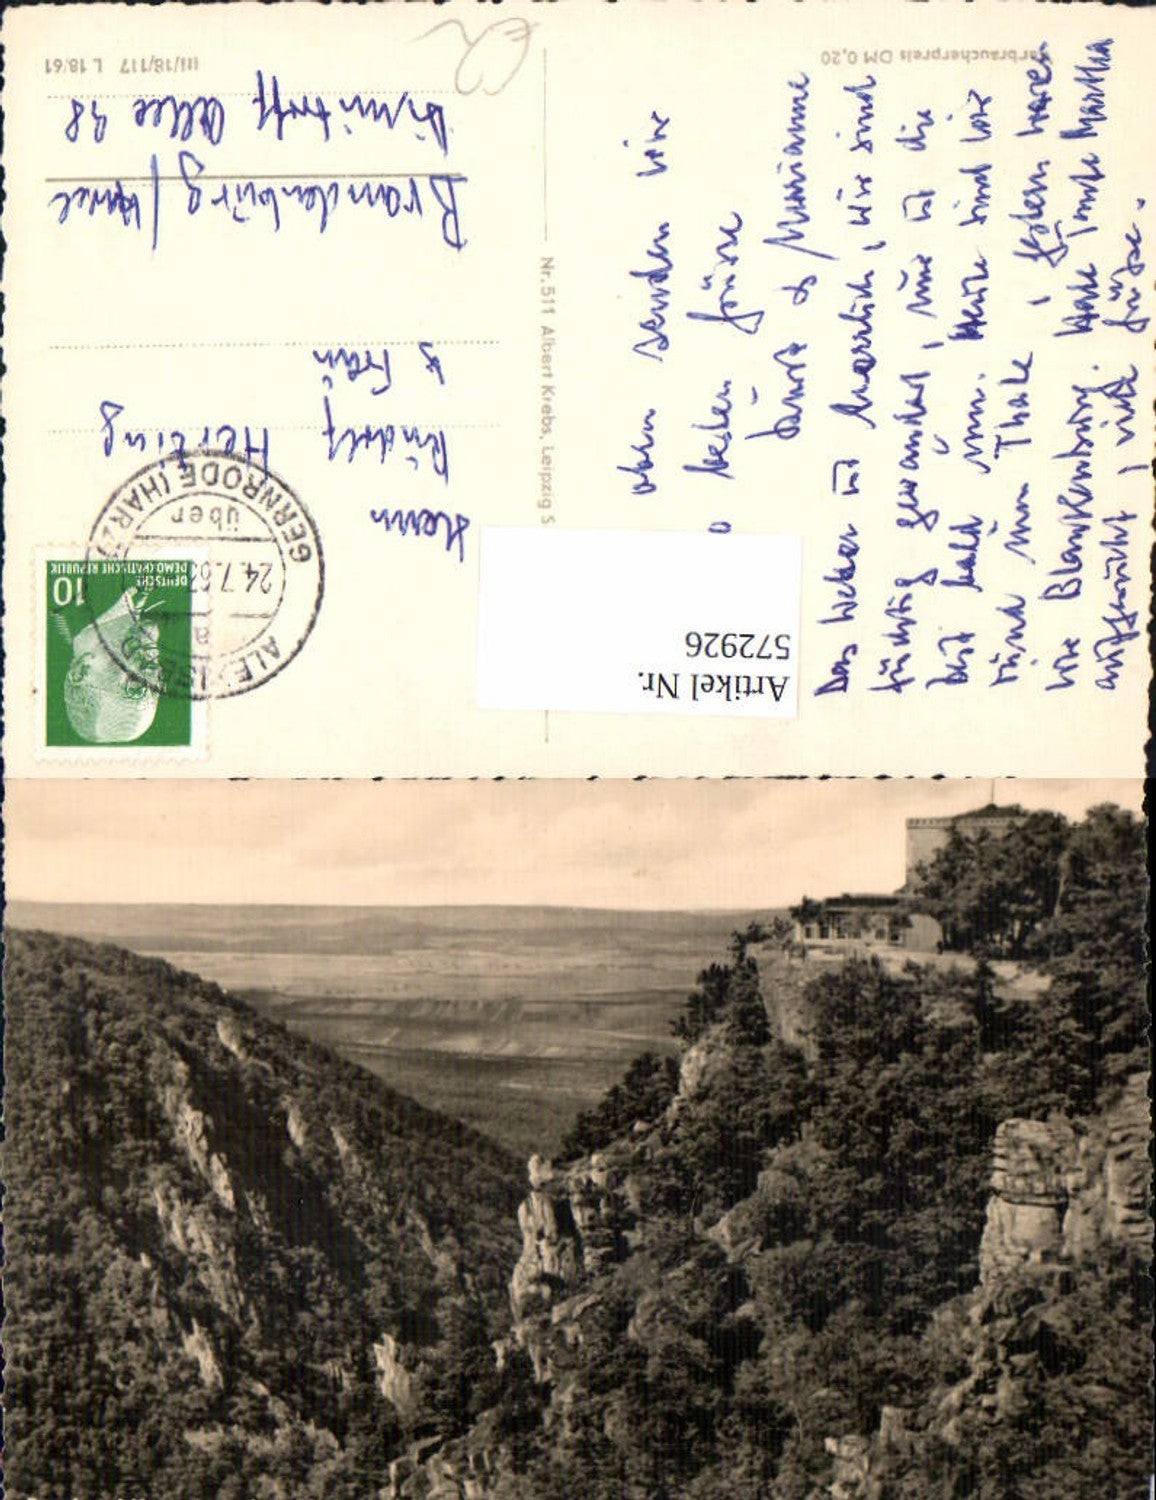 Verbraucherpreis DM 0,20
oben senden wir
beiden Grüsse
Marianne
Das Wetter ist herrlich, wir sind
tüchtig gewandert, nun ist die
Zeit bald um. Heute sind wir
rund um Thale, gestern waren
wir Blankenburg. Habe Tante Martha
aufgesucht, viele Grüße.
Artikel Nr.
572926
Nr. 511 Albert Krebs, Leipzig S
DEUTSCHE
DEMOKRATISCHE REPUBLIK
10
ALEXISBAD
24.7.63
über
GERNRODE (HARZ)
Herrn
Rudolf Herting
& Frau
Brandenburg / Havel
Dimitroff Allee 38
III/18/117 L 18/61